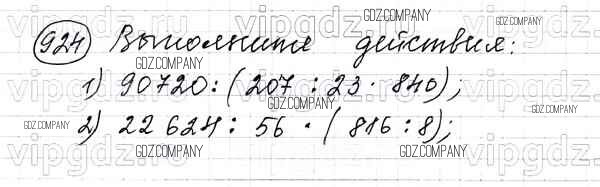 924 Выполните действия:
1) 90720 : (207 : 23 · 840);
2) 22 624 : 56 · (816 : 8);
GDZ.COMPANY
GDZ.COMPANY
GDZ.COMPANY
GDZ.COMPANY
GDZ.COMPANY
GDZ.COMPANY
GDZ.COMPANY
GDZ.COMPANY
vipgdz.ru
vipgdz.ru
vipgdz.ru